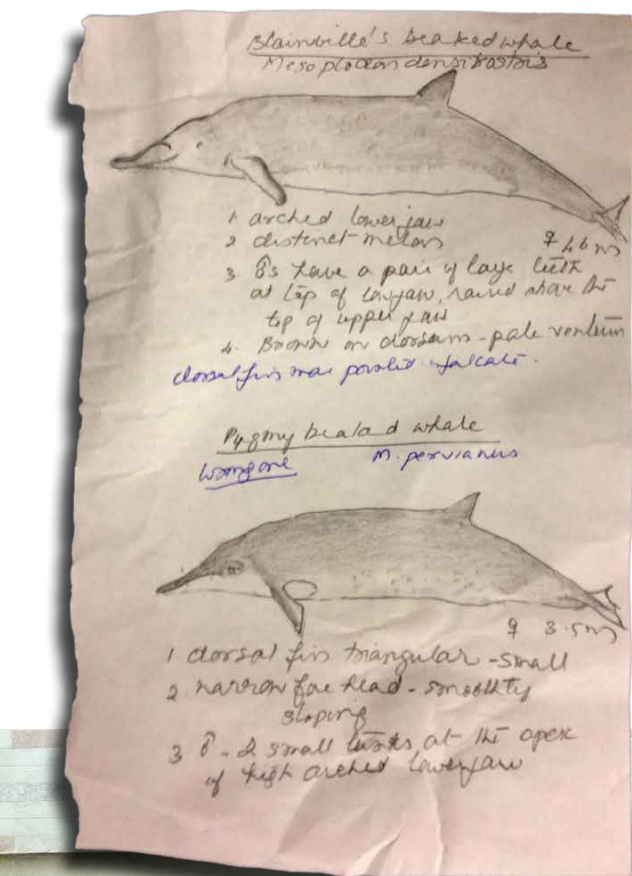 Blainville's beaked whale
Mesoplodon densirostris
1. arched lower jaw
2 distinct melon
♀ 4.6 m
3 ♂s have a pair of large teeth
at top of lowjaw, raised above the
top of upper jaw
4. Brown on dorsum - pale ventrum
dorsal fin more pointed falcate.
Pygmy beaked whale
wrong one M. peruvianus
♀ 3.5m
1. dorsal fin triangular - small
2 narrow fore head - smoothly
sloping
3 ♂ - 2 small tusks, at the apex
of high arched lowerjaw